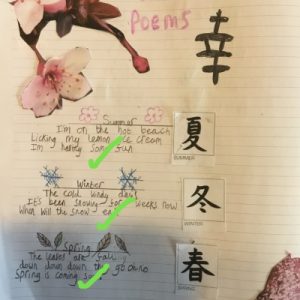 Poems
幸
Summer
I'm on the hot beach
Licking my lemon ice cream
I'm having some fun
夏
SUMMER
Winter
The cold windy days
It's been snowing for weeks now
When will the snow end
冬
WINTER
Spring
The leaves are fall
down down down the go
Spring is coming soon
春